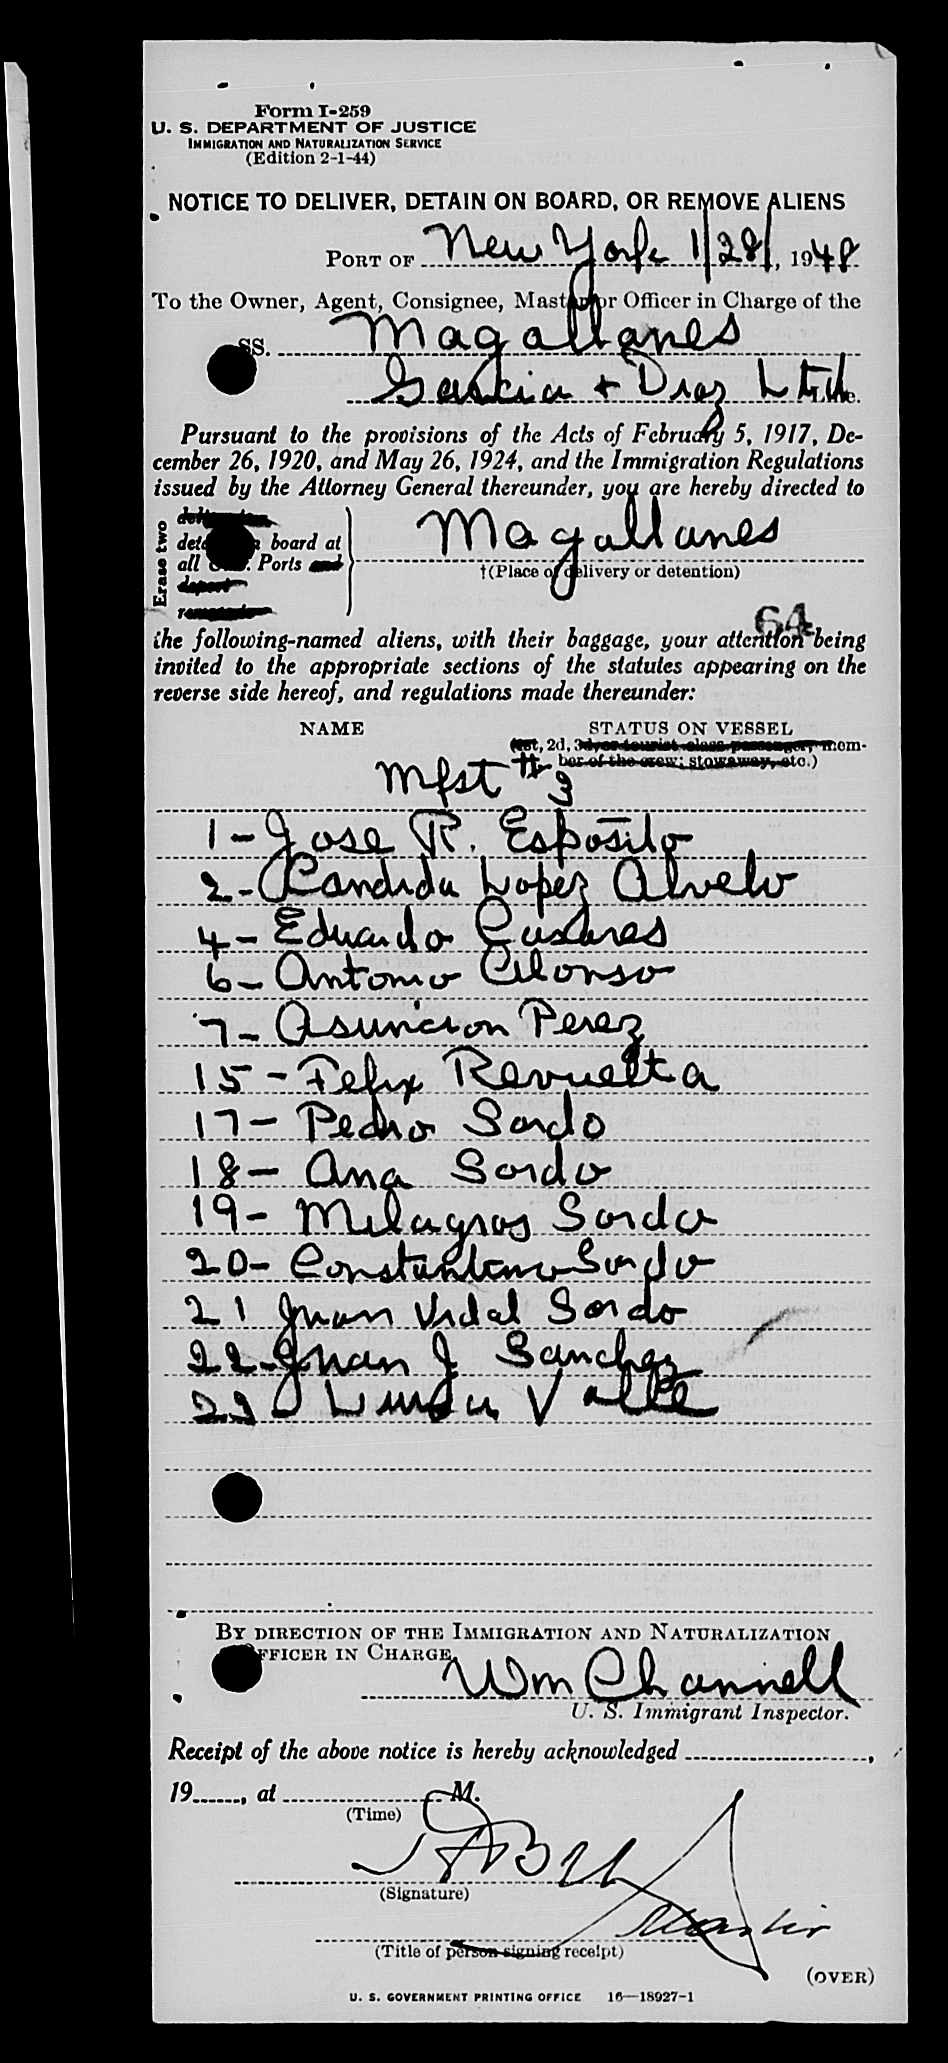 Form I-259
U. S. DEPARTMENT OF JUSTICE
IMMIGRATION AND NATURALIZATION SERVICE
(Edition 2-1-44)
NOTICE TO DELIVER, DETAIN ON BOARD, OR REMOVE ALIENS
PORT OF New York 1/28/, 1948
To the Owner, Agent, Consignee, Master or Officer in Charge of the
SS. Magallanes
Garcia + Diaz Ltd
Pursuant to the provisions of the Acts of February 5, 1917, De-
cember 26, 1920, and May 26, 1924, and the Immigration Regulations
issued by the Attorney General thereunder, you are hereby directed to
Erase two
board at Magallanes
all Ports and
†(Place of delivery or detention)
deport
64
the following-named aliens, with their baggage, your attention being
invited to the appropriate sections of the statutes appearing on the
reverse side hereof, and regulations made thereunder:
NAME STATUS ON VESSEL
(1st, 2d, 3d, or tourist class passenger, mem-
ber of the crew; stowaway, etc.)
Mfst # 3
1 - Jose R. Esposito
2 - Candida Lopez Alvelo
4 - Eduardo Casares
6 - Antonio Alonso
7 - Asuncion Perez
15 - Felix Revuelta
17 - Pedro Sordo
18 - Ana Sordo
19 - Milagros Sordo
20 - Constantino Sordo
21 Juan Vidal Sordo
22 - Juan J. Sanchez
23 Valle
BY DIRECTION OF THE IMMIGRATION AND NATURALIZATION
OFFICER IN CHARGE
Wm Channell
U. S. Immigrant Inspector.
Receipt of the above notice is hereby acknowledged ,
19 , at M.
(Time)
(Signature)
(Title of person signing receipt)
(OVER)
U. S. GOVERNMENT PRINTING OFFICE 16—18927-1